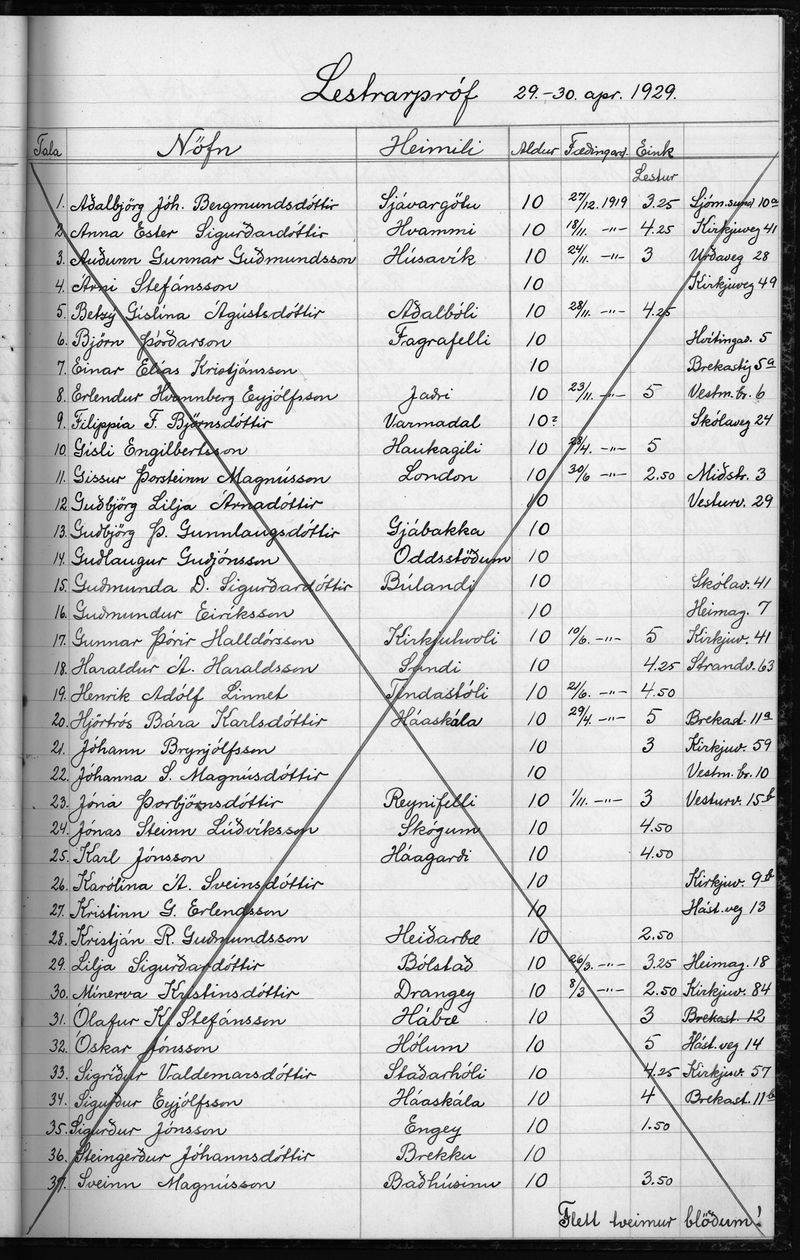 Lestrarpróf 29.-30. apr. 1929.
Tala Nöfn Heimili Aldur Fæðingard. Eink
Lestur
1. Aðalbjörg Jóh. Bergmundsdóttir Sjávargötu 10 27/12. 1919 3.25 Sjóm.sund 10a
2. Anna Ester Sigurðardóttir Hvammi 10 18/11. -"- 4.25 Kirkjuveg 41
3. Auðunn Gunnar Guðmundsson Húsavík 10 24/11. -"- 3 Urðaveg 28
4. Árni Stefánsson 10 Kirkjuveg 49
5. Betzý Gíslína Ágústsdóttir Aðalbóli 10 28/11. -"- 4.25
6. Björn Þórðarson Fagrafelli 10 Hvítingav. 5
7. Einar Elías Kristjánsson 10 Brekastíg 5a
8. Erlendur Hvannberg Eyjólfsson Jaðri 10 23/11. -"- 5 Vestm.br. 6
9. Filippía F. Björnsdóttir Varmadal 10? Skólaveg 24
10. Gísli Engilbertsson Haukagili 10 28/4. -"- 5
11. Gissur Þorsteinn Magnússon London 10 30/6 -"- 2.50 Miðstr. 3
12. Guðbjörg Lilja Árnadóttir 10 Vesturv. 29
13. Guðbjörg Þ. Gunnlaugsdóttir Gjábakka 10
14. Guðlaugur Guðjónsson Oddsstöðum 10
15. Guðmunda D. Sigurðardóttir Búlandi 10 Skólav. 41
16. Guðmundur Eiríksson 10 Heimag. 7
17. Gunnar Þórir Halldórsson Kirkjuhvoli 10 10/6. -"- 5 Kirkjuv. 41
18. Haraldur Á. Haraldsson Sandi 10 4.25 Strandv. 63
19. Henrik Adólf Linnet Tindastóli 10 21/6. -"- 4.50
20. Hjörtrós Bára Karlsdóttir Háaskála 10 29/4. -"- 5 Brekast. 11a
21. Jóhann Brynjólfsson 10 3 Kirkjuv. 59
22. Jóhanna S. Magnúsdóttir 10 Vestm.br. 10
23. Jóna Þorbjörnsdóttir Reynifelli 10 1/11. -"- 3 Vesturv. 15b
24. Jónas Steinn Lúðvíksson Skógum 10 4.50
25. Karl Jónsson Háagarði 10 4.50
26. Karólína Á. Sveinsdóttir 10 Kirkjuv. 9b
27. Kristinn G. Erlendsson 10 Hást.veg 13
28. Kristján R. Guðmundsson Heiðarbæ 10 2.50
29. Lilja Sigurðardóttir Bólstað 10 26/3. -"- 3.25 Heimag. 18
30. Mínerva Kristinsdóttir Drangey 10 8/3 -"- 2.50 Kirkjuv. 84
31. Ólafur K. Stefánsson Hábæ 10 3 Brekast. 12
32. Óskar Jónsson Hólum 10 5 Hást.veg 14
33. Sigríður Valdemarsdóttir Staðarhóli 10 4.25 Kirkjuv. 57
34. Sigurður Eyjólfsson Háaskála 10 4 Brekast. 11b
35. Sigurður Jónsson Engey 10 1.50
36. Steingerður Jóhannsdóttir Brekku 10
37. Sveinn Magnússon Baðhúsinu 10 3.50
Flett tveimur blöðum!